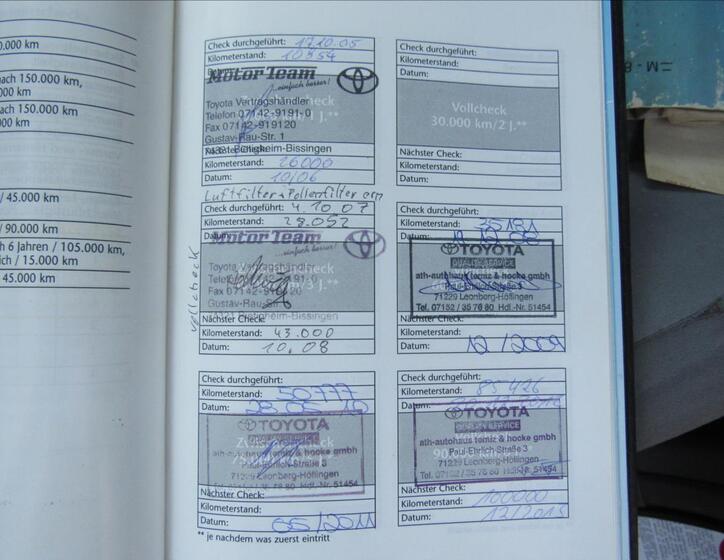 0.000 km
nach 150.000 km,
000 km
nach 150.000 km
000 km
/ 45.000 km
/ 90.000 km
h 6 Jahren / 105.000 km,
lich / 15.000 km
45.000 km
=M - 8
Check durchgeführt: 17.10.05
Kilometerstand: 10954
Motor Team
...einfach besser!
Toyota Vertragshändler
Telefon 07142-9191-0
Fax 07142-919120
Gustav-Rau-Str. 1
74321 Bietigheim-Bissingen
Kilometerstand: 26000
Datum: 10/06
Check durchgeführt:
Kilometerstand:
Datum:
Vollcheck
30.000 km/2 J.**
Nächster Check:
Kilometerstand:
Datum:
Luftfilter + Pollenfilter ern
Check durchgeführt: 4.10.07
Kilometerstand: 28.052
Datum:
Motor Team
...einfach besser!
Toyota Vertragshändler
Telefon 07142-9191-0
Fax 07142-919120
Gustav-Rau-Str.
74321 Bietigheim-Bissingen
Nächster Check:
Kilometerstand: 43.000
Datum: 10.08
Vollcheck
Check durchgeführt:
Kilometerstand: 35181
Datum:
TOYOTA
QUALITY SERVICE
ath-autohaus temiz & hooke gmbh
Paul-Ehrlich-Straße 3
71229 Leonberg-Höfingen
Tel. 07152 / 35 76 80 Hdl.-Nr. 51454
Nächster Check:
Kilometerstand:
Datum: 12/2009
Check durchgeführt:
Kilometerstand: 50777
Datum: 28.05.10
TOYOTA
QUALITY SERVICE
ath-autohaus temiz & hooke gmbh
Paul-Ehrlich-Straße 3
71229 Leonberg-Höfingen
Tel. 07152 / 35 76 80 Hdl.-Nr. 51454
Nächster Check:
Kilometerstand:
Datum: 05/2011
Check durchgeführt:
Kilometerstand: 85426
Datum:
TOYOTA
QUALITY SERVICE
ath-autohaus temiz & hooke gmbh
Paul-Ehrlich-Straße 3
71229 Leonberg-Höfingen
Tel. 07152 / 35 76 80 Hdl.-Nr. 51454
Nächster Check:
Kilometerstand: 100000
Datum: 12/2015
** je nachdem was zuerst eintritt